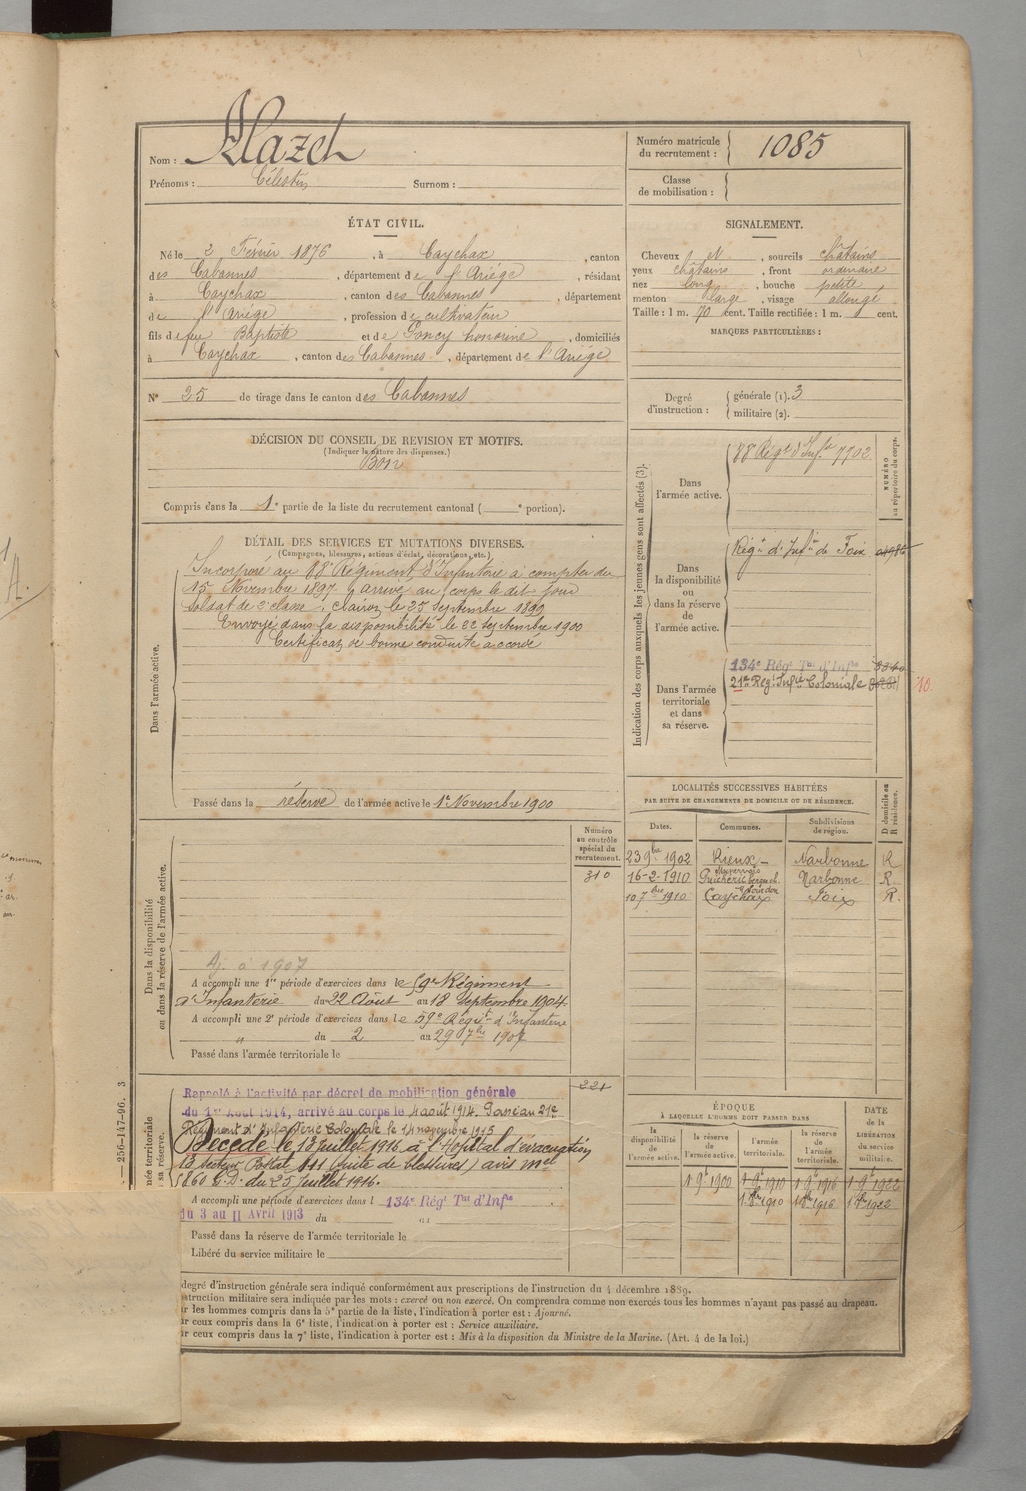 Nom : Mazet
Prénoms : Célestin Surnom :
Numéro matricule du recrutement : 1085
Classe de mobilisation :
ÉTAT CIVIL.
Né le 2 Février 1876, à Caychax, canton
des Cabannes, département de l'Ariège, résidant
à Caychax, canton des Cabannes, département
de l'Ariège, profession de cultivateur
fils de feu Baptiste et de Goncy honorine, domiciliés
à Caychax, canton des Cabannes, département de l'Ariège.
N° 25 de tirage dans le canton des Cabannes
SIGNALEMENT.
Cheveux N, sourcils châtains
yeux châtains, front ordinaire
nez long, bouche petite
menton large, visage allongé
Taille : 1 m. 70 cent. Taille rectifiée : 1 m. cent.
MARQUES PARTICULIÈRES :
Degré d'instruction : générale (1). 3
militaire (2).
DÉCISION DU CONSEIL DE REVISION ET MOTIFS.
(Indiquer la nature des dispenses.)
Bon
Compris dans la 1e partie de la liste du recrutement cantonal ( e portion).
DÉTAIL DES SERVICES ET MUTATIONS DIVERSES.
(Campagnes, blessures, actions d'éclat, décorations, etc.)
Dans l'armée active.
Incorporé au 88e Régiment d'Infanterie à compter du
15 Novembre 1897. y arrivé au corps le dit jour
soldat de 2e classe. Clairon le 25 septembre 1899
Envoyé dans la disponibilité le 22 septembre 1900
Certificat de bonne conduite accordé
Passé dans la réserve de l'armée active le 1er Novembre 1900
Indication des corps auxquels les jeunes gens sont affectés (3).
NUMÉRO au répertoire du corps.
Dans l'armée active.
88 Régt d'Infie 7702
Dans la disponibilité ou dans la réserve de l'armée active.
Régnt d'Infie de Foix
Dans l'armée territoriale et dans sa réserve.
134e Régt Tal d'Infie
21e Régt Infie Coloniale
10.
LOCALITÉS SUCCESSIVES HABITÉES
PAR SUITE DE CHANGEMENTS DE DOMICILE OU DE RÉSIDENCE.
Dates. Communes. Subdivisions de région. D domicile ou R résidence.
23 9bre 1902 Rieux- Narbonne R
Minervois
16-2-1910 Narbonne R.
10 7bre 1910 Caychax Foix R.
Dans la disponibilité ou dans la réserve de l'armée active.
Numéro au contrôle spécial du recrutement.
310
Aj. à 1907
A accompli une 1re période d'exercices dans le 59e Régiment
d'Infanterie du 22 Août au 18 Septembre 1904
A accompli une 2e période d'exercices dans le 59e Régit d'Infanterie
" du 2 au 29 7bre 1907
Passé dans l'armée territoriale le
221
Rappelé à l'activité par décret de mobilisation générale
du 1er Août 1914, arrivé au corps le 4 août 1914. Passé au 21e
Régiment d'Infanterie Coloniale le 14 novembre 1915
Décédé le 13 juillet 1916 à l'Hôpital d'évacuation
13 secteur Postal 111 (suite de blessures) avis mel
1860 G.D. du 25 juillet 1916.
A accompli une période d'exercices dans l 134e Régt Tal d'Infie
du 3 au 11 Avril 1913 du
Passé dans la réserve de l'armée territoriale le
Libéré du service militaire le
ÉPOQUE
À LAQUELLE L'HOMME DOIT PASSER DANS
la disponibilité de l'armée active. la réserve de l'armée active. l'armée territoriale. la réserve de l'armée territoriale.
DATE de la LIBÉRATION du service militaire.
1 9e 1900 1 9e 1910 1 9e 1916 1 9e 1922
1 8bre 1910 1 8bre 1916 1 8bre 1922
— 256-147-96. 3
degré d'instruction générale sera indiqué conformément aux prescriptions de l'instruction du 4 décembre 1889.
struction militaire sera indiquée par les mots : exercé ou non exercé. On comprendra comme non exercés tous les hommes n'ayant pas passé au drapeau.
ur les hommes compris dans la 5e partie de la liste, l'indication à porter est : Ajourné.
ur ceux compris dans la 6e liste, l'indication à porter est : Service auxiliaire.
ur ceux compris dans la 7e liste, l'indication à porter est : Mis à la disposition du Ministre de la Marine. (Art. 4 de la loi.)